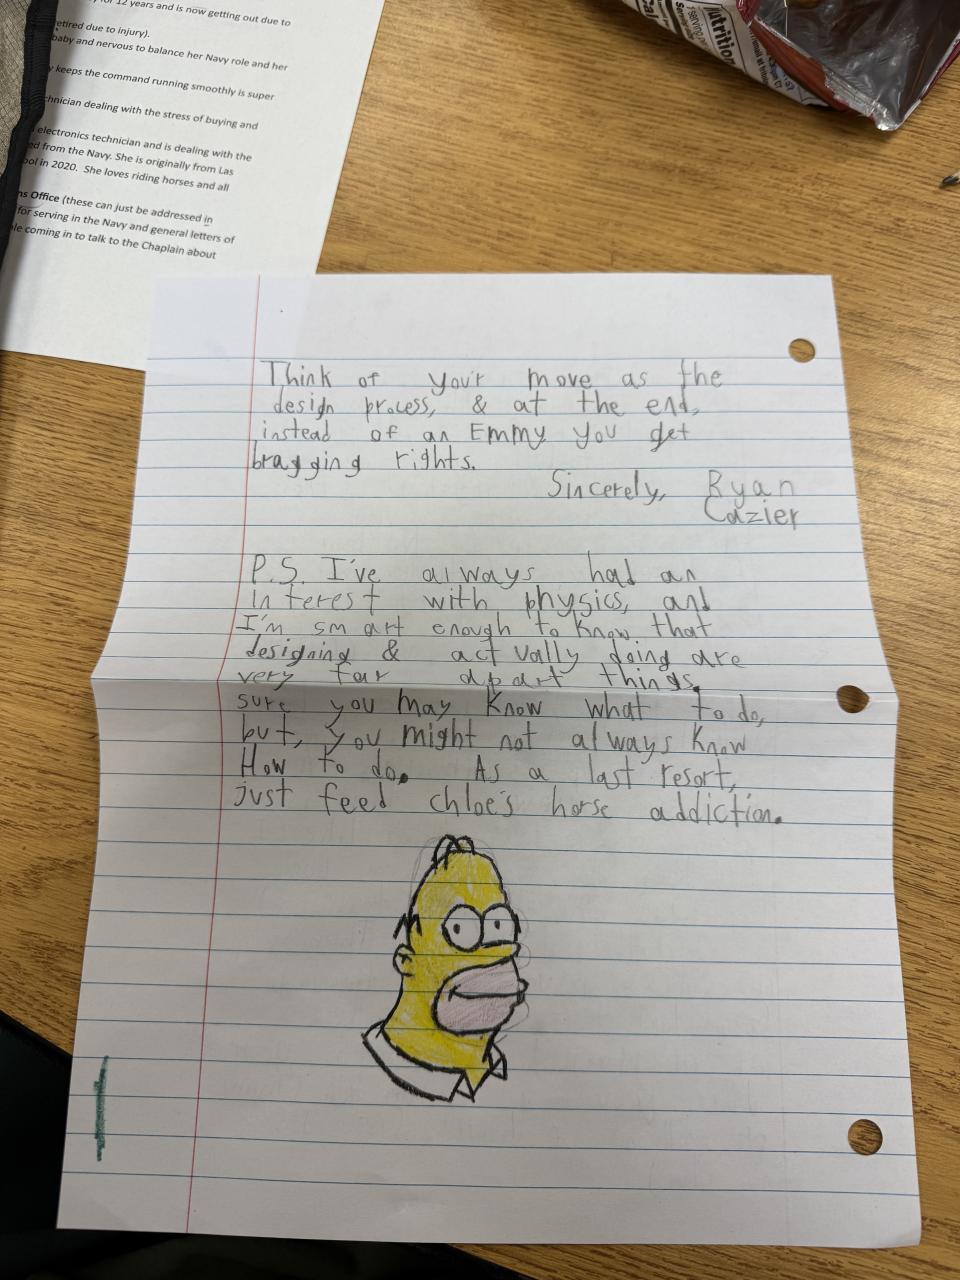 12 years and is now getting out due to
etired due to injury).
baby and nervous to balance her Navy role and her
keeps the command running smoothly is super
chnician dealing with the stress of buying and
electronics technician and is dealing with the
ed from the Navy. She is originally from Las
ool in 2020. She loves riding horses and all
ns Office (these can just be addressed in
for serving in the Navy and general letters of
le coming in to talk to the Chaplain about
Nutrition
Think of your move as the
design process, & at the end,
instead of an Emmy you get
bragging rights.
Sincerely, Ryan
Cazier
P.S. I've always had an
interest with physics, and
I'm smart enough to know that
designing & actually doing are
very far apart things.
sure you may know what to do,
but, you might not always know
How to do. As a last resort,
just feed chloe's horse addiction.